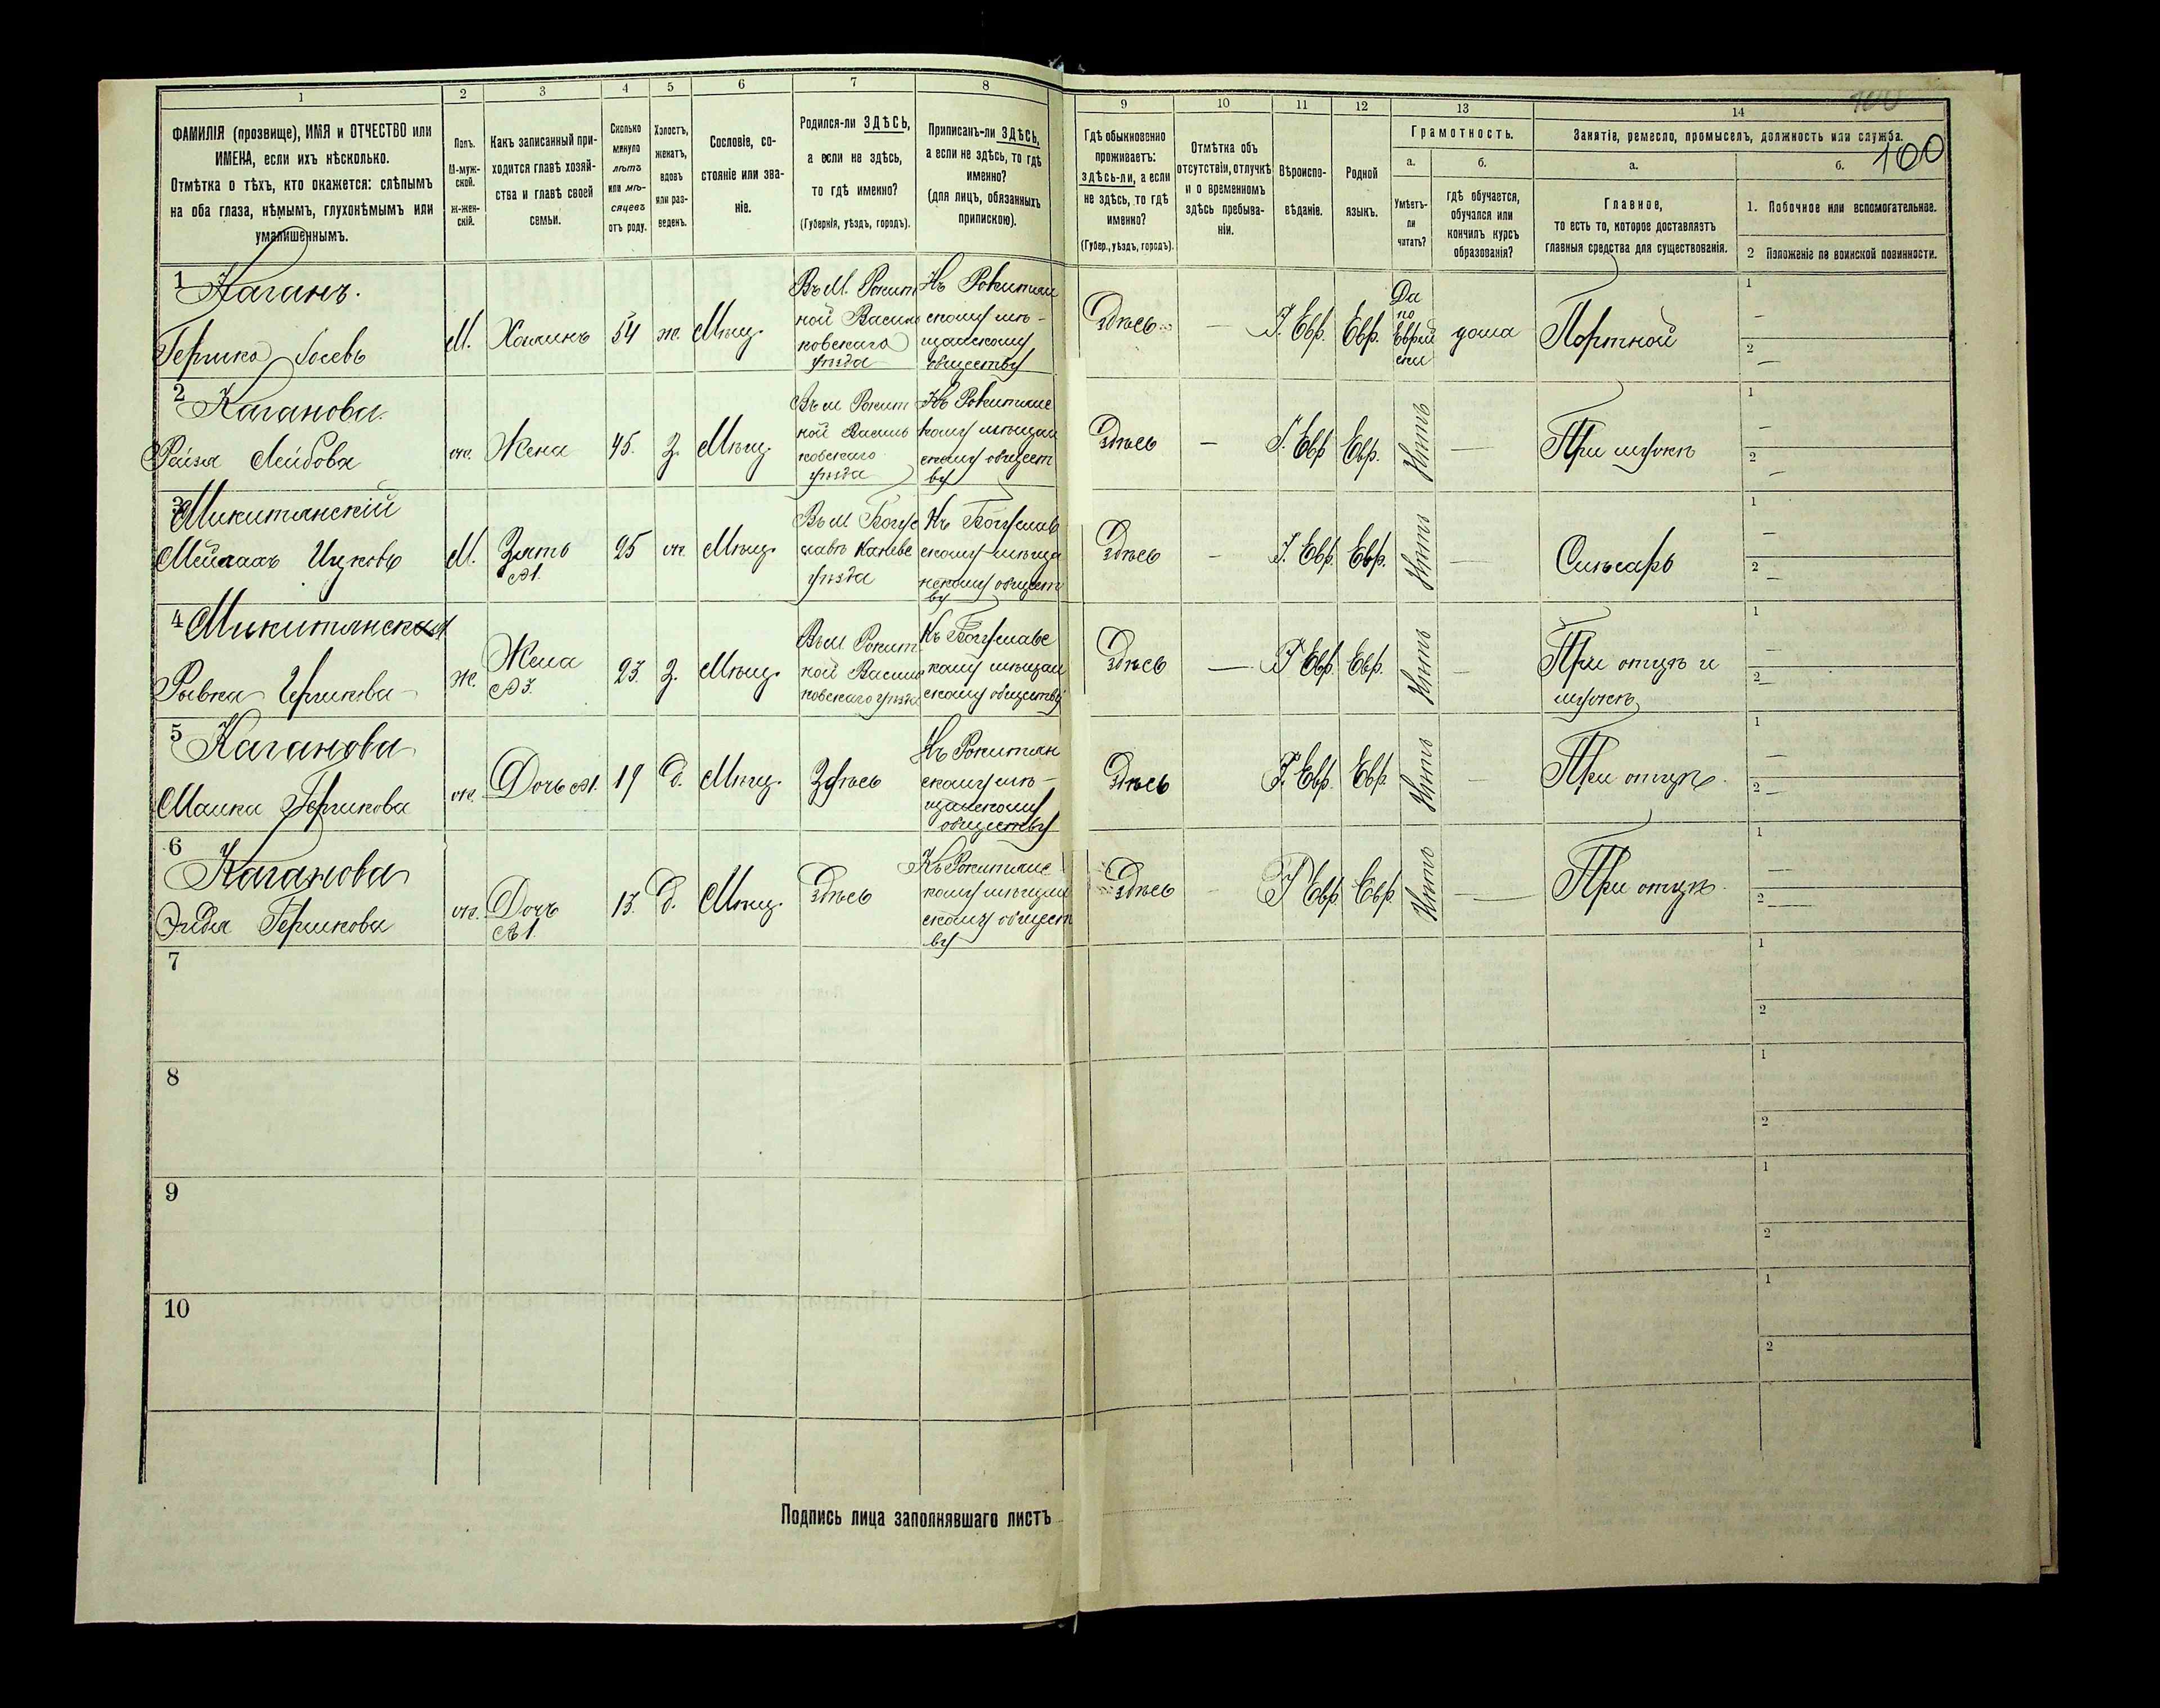 1
2
3
4
5
6
7
8
ФАМИЛІЯ (прозвище), ИМЯ и ОТЧЕСТВО или
ИМЕНА, если ихъ нѣсколько.
Отмѣтка о тѣхъ, кто окажется: слѣпымъ
на оба глаза, нѣмымъ, глухонѣмымъ или
умалишеннымъ.
Полъ.
М-муж-
ской.
Ж-жен-
скій.
Какъ записанный при-
ходится главѣ хозяй-
ства и главѣ своей
семьи.
Сколько
минуло
лѣтъ
или мѣ-
сяцевъ
отъ роду.
Холостъ,
женатъ,
вдовъ
или раз-
веденъ.
Сословіе, со-
стояніе или зва-
ніе.
Родился-ли ЗДѢСЬ,
а если не здѣсь,
то гдѣ именно?
(Губернія, уѣздъ, городъ).
Приписанъ-ли ЗДѢСЬ,
а если не здѣсь, то гдѣ
именно?
(для лицъ, обязанныхъ
припискою).
9
10
11
12
13
14
100
Гдѣ обыкновенно
проживаетъ:
здѣсь-ли, а если
не здѣсь, то гдѣ
именно?
(Губер., уѣздъ, городъ).
Отмѣтка объ
отсутствіи, отлучкѣ
и о временномъ
здѣсь пребыва-
ніи.
Вѣроиспо-
вѣданіе.
Родной
языкъ.
Грамотность.
а.
б.
Умѣетъ-
ли
читать?
гдѣ обучается,
обучался или
кончилъ курсъ
образованія?
Занятіе, ремесло, промыселъ, должность или служба.
а.
б.
100
Главное,
то есть то, которое доставляетъ
главныя средства для существованія.
1. Побочное или вспомогательное.
2 Положеніе по воинской повинности.
1
Каганъ.
Гершко Іосевъ
М.
Хозяинъ
54
ж.
Мѣщ.
Въ М. Рокит
ной Васил
ковскаго
уѣзда
Къ Рокитян
скому мѣ-
щанскому
обществу
Здѣсь
—
І. Евр.
Евр.
Да
по
Еврей
ски
дома
Портной
1
—
2
—
2
Каганова.
Ройзя Лейбова
ж.
Жена
45.
З.
Мѣщ.
Въ м Рокит
ной Василь
ковскаго
уѣзда
Къ Рокитянс
кому мѣщан
скому общест
ву
Здѣсь
—
І. Евр
Евр.
Нѣтъ
—
При мужѣ
1
—
2
—
3
Микитянскій
Мейлахъ Ицковъ
М.
Зять
№1.
25
ж
Мѣщ.
Въ м Богус
лавѣ Канев
уѣзда
Къ Богуслав
скому мѣща
нскому общест
ву
Здѣсь
—
І. Евр.
Евр.
Нѣтъ
—
Слѣсарь
1
—
2
—
4
Микитянская
Рывка Гершкова
ж.
Жена
№3.
23.
З.
Мѣщ.
Въ м Рокит
ной Василь
ковскаго уѣзда
Къ Богуславс
кому мѣщан
скому обществу
Здѣсь
—
І Евр.
Евр.
Нѣтъ
—
При отцѣ и
мужѣ
1
—
2
—
5
Каганова
Малка Гершкова
ж.
Дочь №1.
19
д.
Мѣщ.
Здѣсь
Къ Рокитян
скому мѣ-
щанскому
обществу
Здѣсь
І. Евр.
Евр.
Нѣтъ
—
При отцѣ.
1
—
2
—
6
Каганова
Эйдля Гершкова
ж.
Дочь
№1.
13.
д.
Мѣщ.
Здѣсь
Къ Рокитянс
кому мѣщан
скому общест
ву
Здѣсь
—
І Евр.
Евр.
Нѣтъ
—
При отцѣ.
1
—
2
—
7
1
2
8
1
2
9
1
2
10
1
2
Подпись лица заполнявшаго листъ